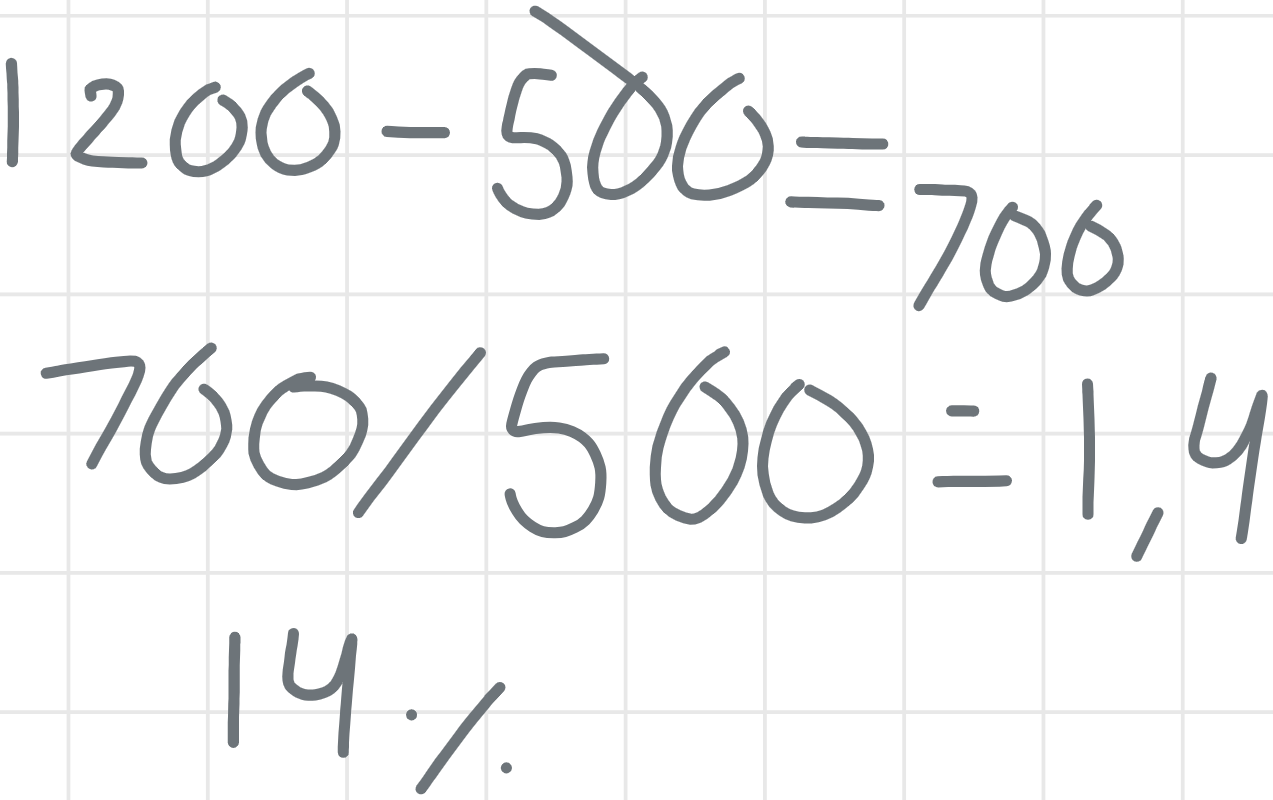 1200-500=700
700/500=1,4
14%